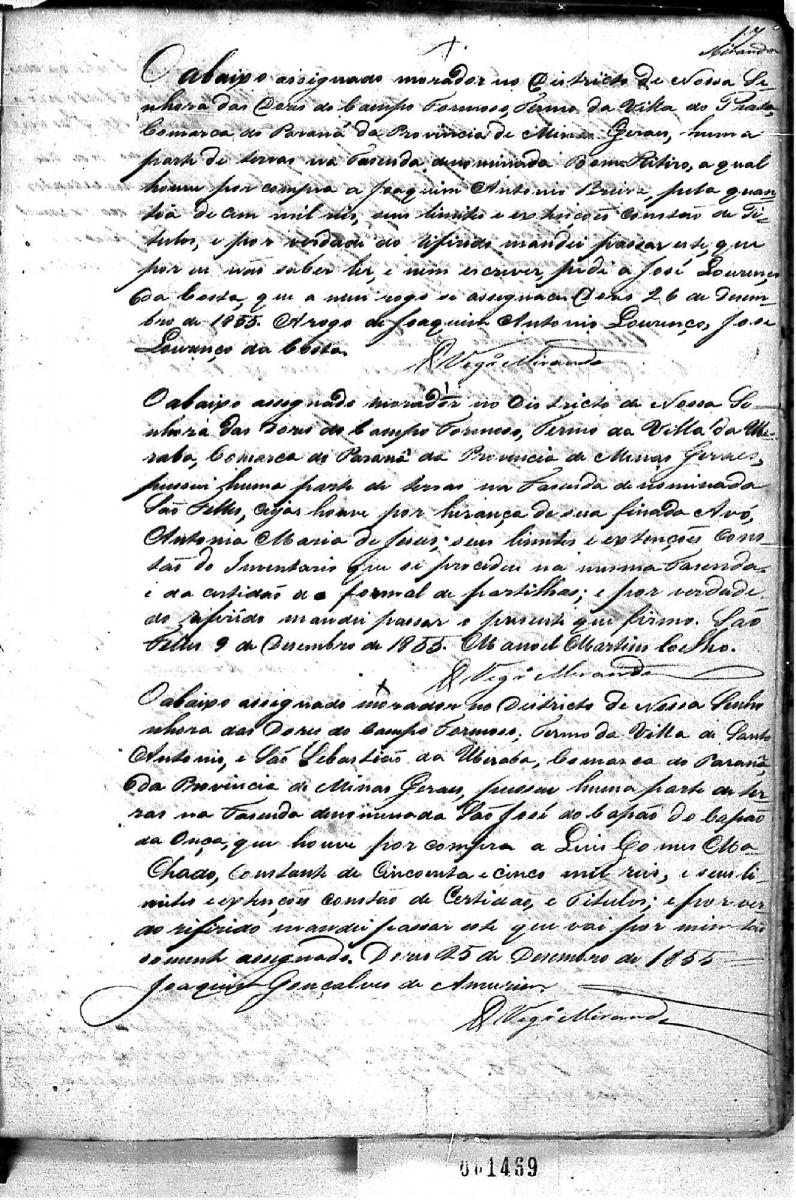 17
Miranda
O abaixo assignado morador no Districto de Nossa Se-
nhora das Dores do Campo Formoso, Termo da Villa do Prata,
Comarca do Paraná da Provincia de Minas Geraes, huma
parte de terras na Fasenda denominada Bom Retiro, a qual
houve por compra a Joaquim Antonio, pela quan-
tia de cem mil reis, seus limites e extenções constão de Ti-
tulos, e por verdade do referido mandei passar este, que
por eu não saber ler, e nem escrever, pedi a José Lourenço
da Costa, que a meu rogo se assignace. Dores 26 de Desem-
bro de 1855. Arogo de Joaquim Antonio Lourenço, José
Lourenço da Costa.
O Vigr.o Miranda
O abaixo assignado morador no Districto de Nossa Se-
nhora das Dores do Campo Formoso, Termo da Villa da Ube-
raba, Comarca do Paraná da Provincia de Minas Geraes,
possui huma parte de terras na Fasenda denominada
São Felles, cujas houve por herança de sua finada Avó,
Antonia Maria de Jesus; seus limites e extenções cons-
tão do Inventario que se procedeu na mesma Fasenda
e da certidão do formal de partilhas; e por verdade
do referido mandei passar o presente que firmo. São
Felles 9 de Desembro de 1855. Manoel Martins Coelho.
O Vigr.o Miranda
O abaixo assignado morador no Districto de Nossa Senho
nhora das Dores do Campo Formoso, Termo da Villa de Santo
Antonio, e São Sebastião da Uberaba, Comarca do Paraná,
da Provincia de Minas Geraes, possui huma parte de ter-
ras na Fasenda denominada São José do Capão do Capão
da Onça, que houve por compra a Luis Gomes Ma
chado, constante de Cincoenta e cinco mil reis, e seus li-
mites e extenções constão de Certidão, e Titulos; e por ver-
do referido mandei passar este que vai por mim tão
somente assignado. Dores 25 de Desembro de 1855
Joaquim Gonçalves de Amorim
O Vigr.o Miranda
001469